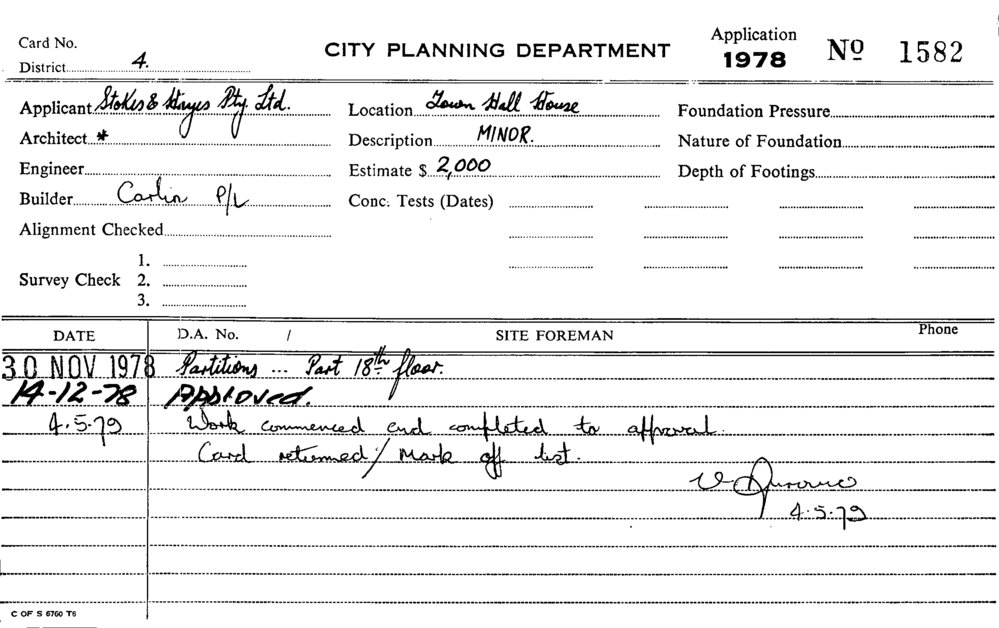 Card No.
District 4.
CITY PLANNING DEPARTMENT
Application
1978 No 1582
Applicant Stokes & Hayes Pty. Ltd. Location Town Hall House Foundation Pressure
Architect * Description MINOR. Nature of Foundation
Engineer Estimate $ 2,000 Depth of Footings
Builder Carlin P/L Conc. Tests (Dates)
Alignment Checked
1.
Survey Check 2.
3.
DATE D.A. No. / SITE FOREMAN Phone
30 NOV 1978 Partitions ... Part 18th floor.
14-12-78 Approved.
4.5.79 Work commenced and completed to approval.
Card returned/Mark off list.
4.5.79
C OF S 6760 T6